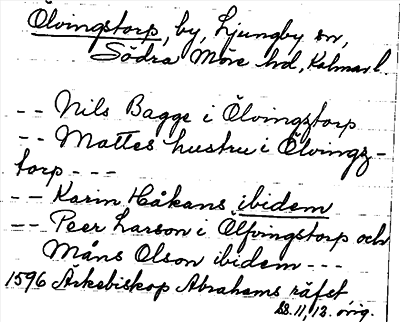 Ölvingstorp, by, Ljungby sn,
Södra Möre hd, Kalmar l.
-- Nils Bagge i Ölvingztorp
-- Mattes hustru i Ölvingz-
torp ---
-- Karin Håkans ibidem
-- Peer Larson i Ölfvingstorp och
Måns Olson ibidem ---
1596 Ärkebiskop Abrahams räfst
11, 12. orig.